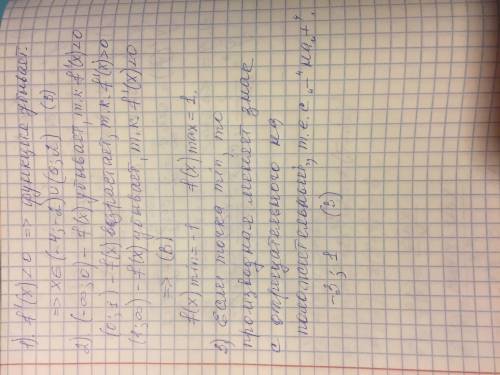 1). f'(x)<0 => функция убывает.
=> x∈(-4;-2)∪(3;2) (3)
2) (-∞;0) - f(x) убывает, т.к. f'(x)<0
(0;1) - f(x) возрастает, т.к. f'(x)>0
(1;∞) - f(x) убывает, т.к. f'(x)<0
=> (3)
f(x) min=-1 f(x) max=1.
3) Если точка min то
производная меняет знак
с отрицательного на
положительный, т.е. с „-“ на „+“.
-3; 1 (3)